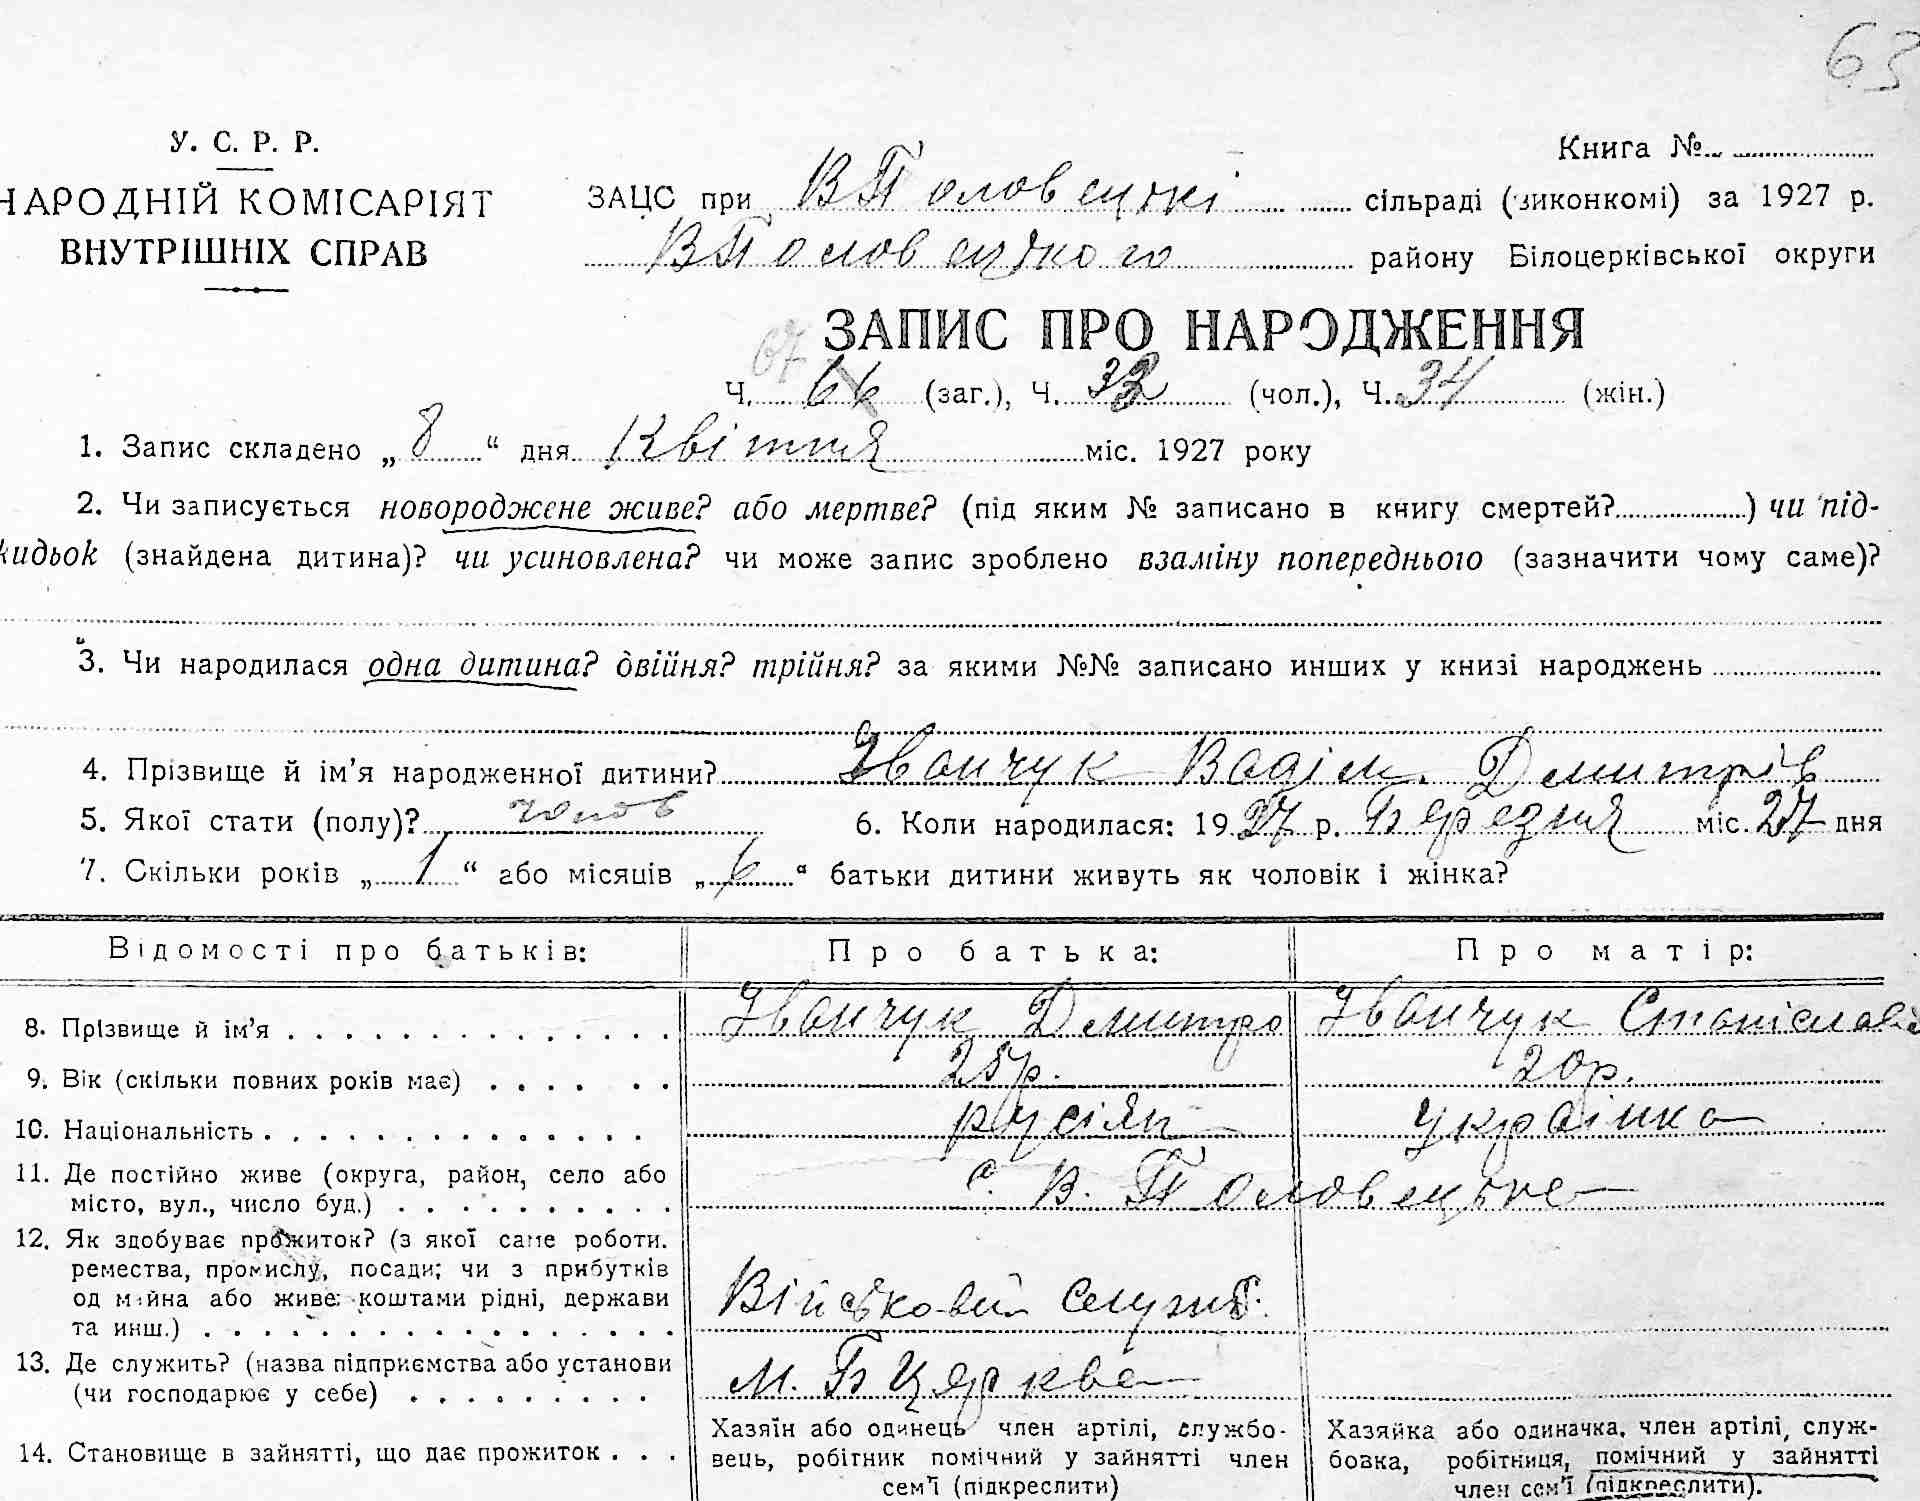 63
У. С. Р. Р.
НАРОДНІЙ КОМІСАРІЯТ
ВНУТРІШНІХ СПРАВ
Книга №
ЗАЦС при ВПоловецькі сільраді (виконкомі) за 1927 р.
ВПоловецького району Білоцерківської округи
ЗАПИС ПРО НАРОДЖЕННЯ
67
Ч. 66 (заг.), Ч. 33 (чол.), Ч. 34 (жін.)
1. Запис складено „8“ дня Квітня міс. 1927 року
2. Чи записується новороджене живе? або мертве? (під яким № записано в книгу смертей?) чи під-
кидьок (знайдена дитина)? чи усиновлена? чи може запис зроблено взаміну попереднього (зазначити чому саме)?
3. Чи народилася одна дитина? двійня? трійня? за якими №№ записано инших у книзі народжень
4. Прізвище й ім'я народженної дитини? Іванчук Вадім Дмитрів
5. Якої стати (полу)? чолов 6. Коли народилася: 1927 р. Березня міс. 27 дня
7. Скільки років „1“ або місяців „6“ батьки дитини живуть як чоловік і жінка?
Відомості про батьків: Про батька: Про матір:
8. Прізвище й ім'я Іванчук Дмитро Іванчук Станіслава
9. Вік (скільки повних років має) 25р. 20р.
10. Національність русіян українка
11. Де постійно живе (округа, район, село або
місто, вул., число буд.) с. В. Половецьке
12. Як здобуває прожиток? (з якої саме роботи.
ремества, промислу, посади; чи з прибутків
од майна або живе коштами рідні, держави
та инш.) Військовий служб.
13. Де служить? (назва підприємства або установи
(чи господарює у себе) м. БЦерква
14. Становище в зайнятті, що дає прожиток
Хазяїн або одинець член артілі, службо-
вець, робітник помічний у зайнятті член
сем'ї (підкреслити)
Хазяйка або одиначка, член артілі, служ-
бовка, робітниця, помічний у зайнятті
член сем'ї (підкреслити).